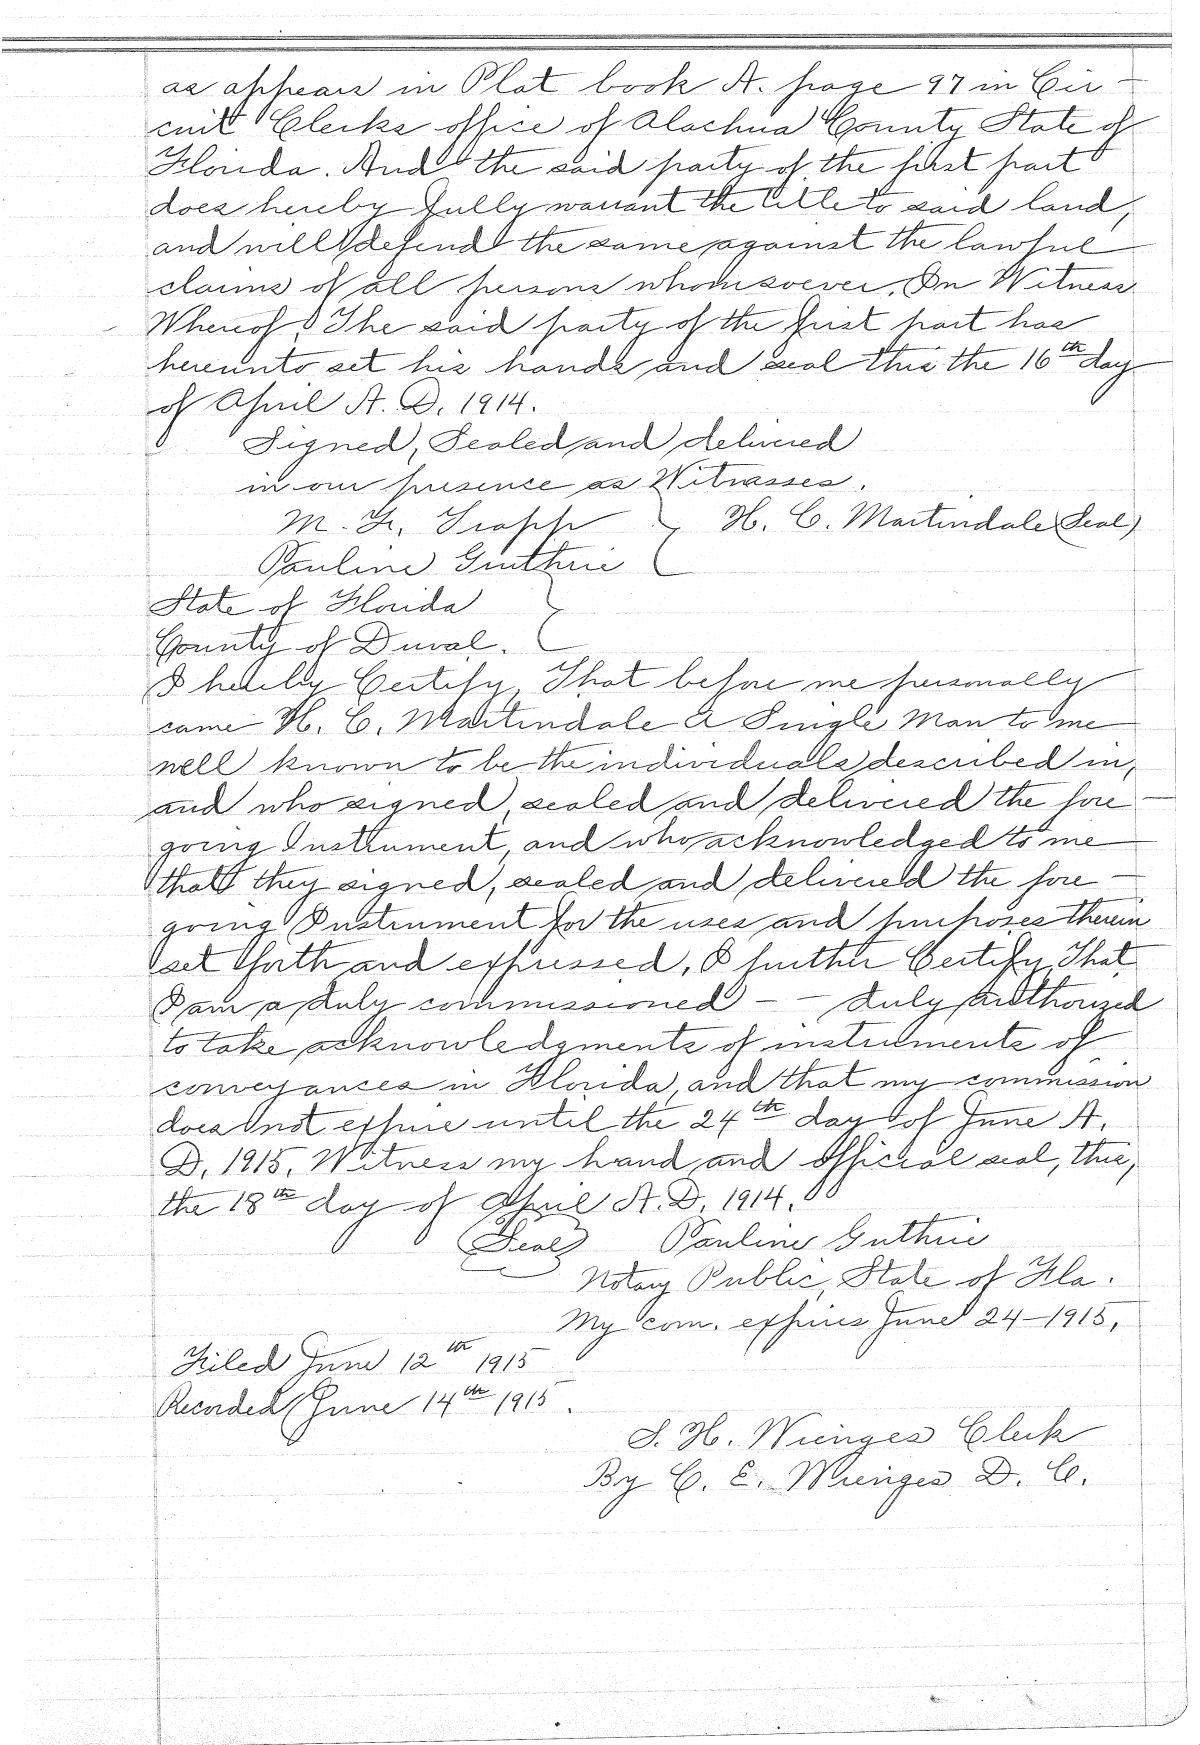 as appears in Plat book A. page 97 in Cir-
cuit Clerks office of Alachua County State of
Florida. And the said party of the first part
does hereby fully warrant the title to said land,
and will defend the same against the lawful
claims of all persons whomsoever. In Witness
Whereof, The said party of the first part has
hereunto set his hands and seal this the 16th day
of April A. D. 1914.
Signed, Sealed and delivered
in our presence as Witnasses.
M. F. Trapp } H. C. Martindale (Seal)
Pauline Guthrie
State of Florida }
County of Duval.
I hereby Certify, That before me personally
came H. C. Martindale A Single Man to me
well known to be the individuals described in,
and who signed, sealed and delivered the fore-
going Instrument, and who acknowledged to me
that they signed, sealed and delivered the fore-
going Instrument for the uses and purposes therein
set forth and expressed, I further Certify, That
I am a duly commissioned - - duly authorized
to take acknowledgments of instruments of
conveyances in Florida, and that my commission
does not expire until the 24th day of June A.
D. 1915. Witness my hand and official seal, this,
the 18th day of April A. D. 1914.
(Seal) Pauline Guthrie
Notary Public, State of Fla.
My com. expires June 24-1915.
Filed June 12th 1915
Recorded June 14th 1915.
S. H. Wienges Clerk
By C. E. Wienges D. C.